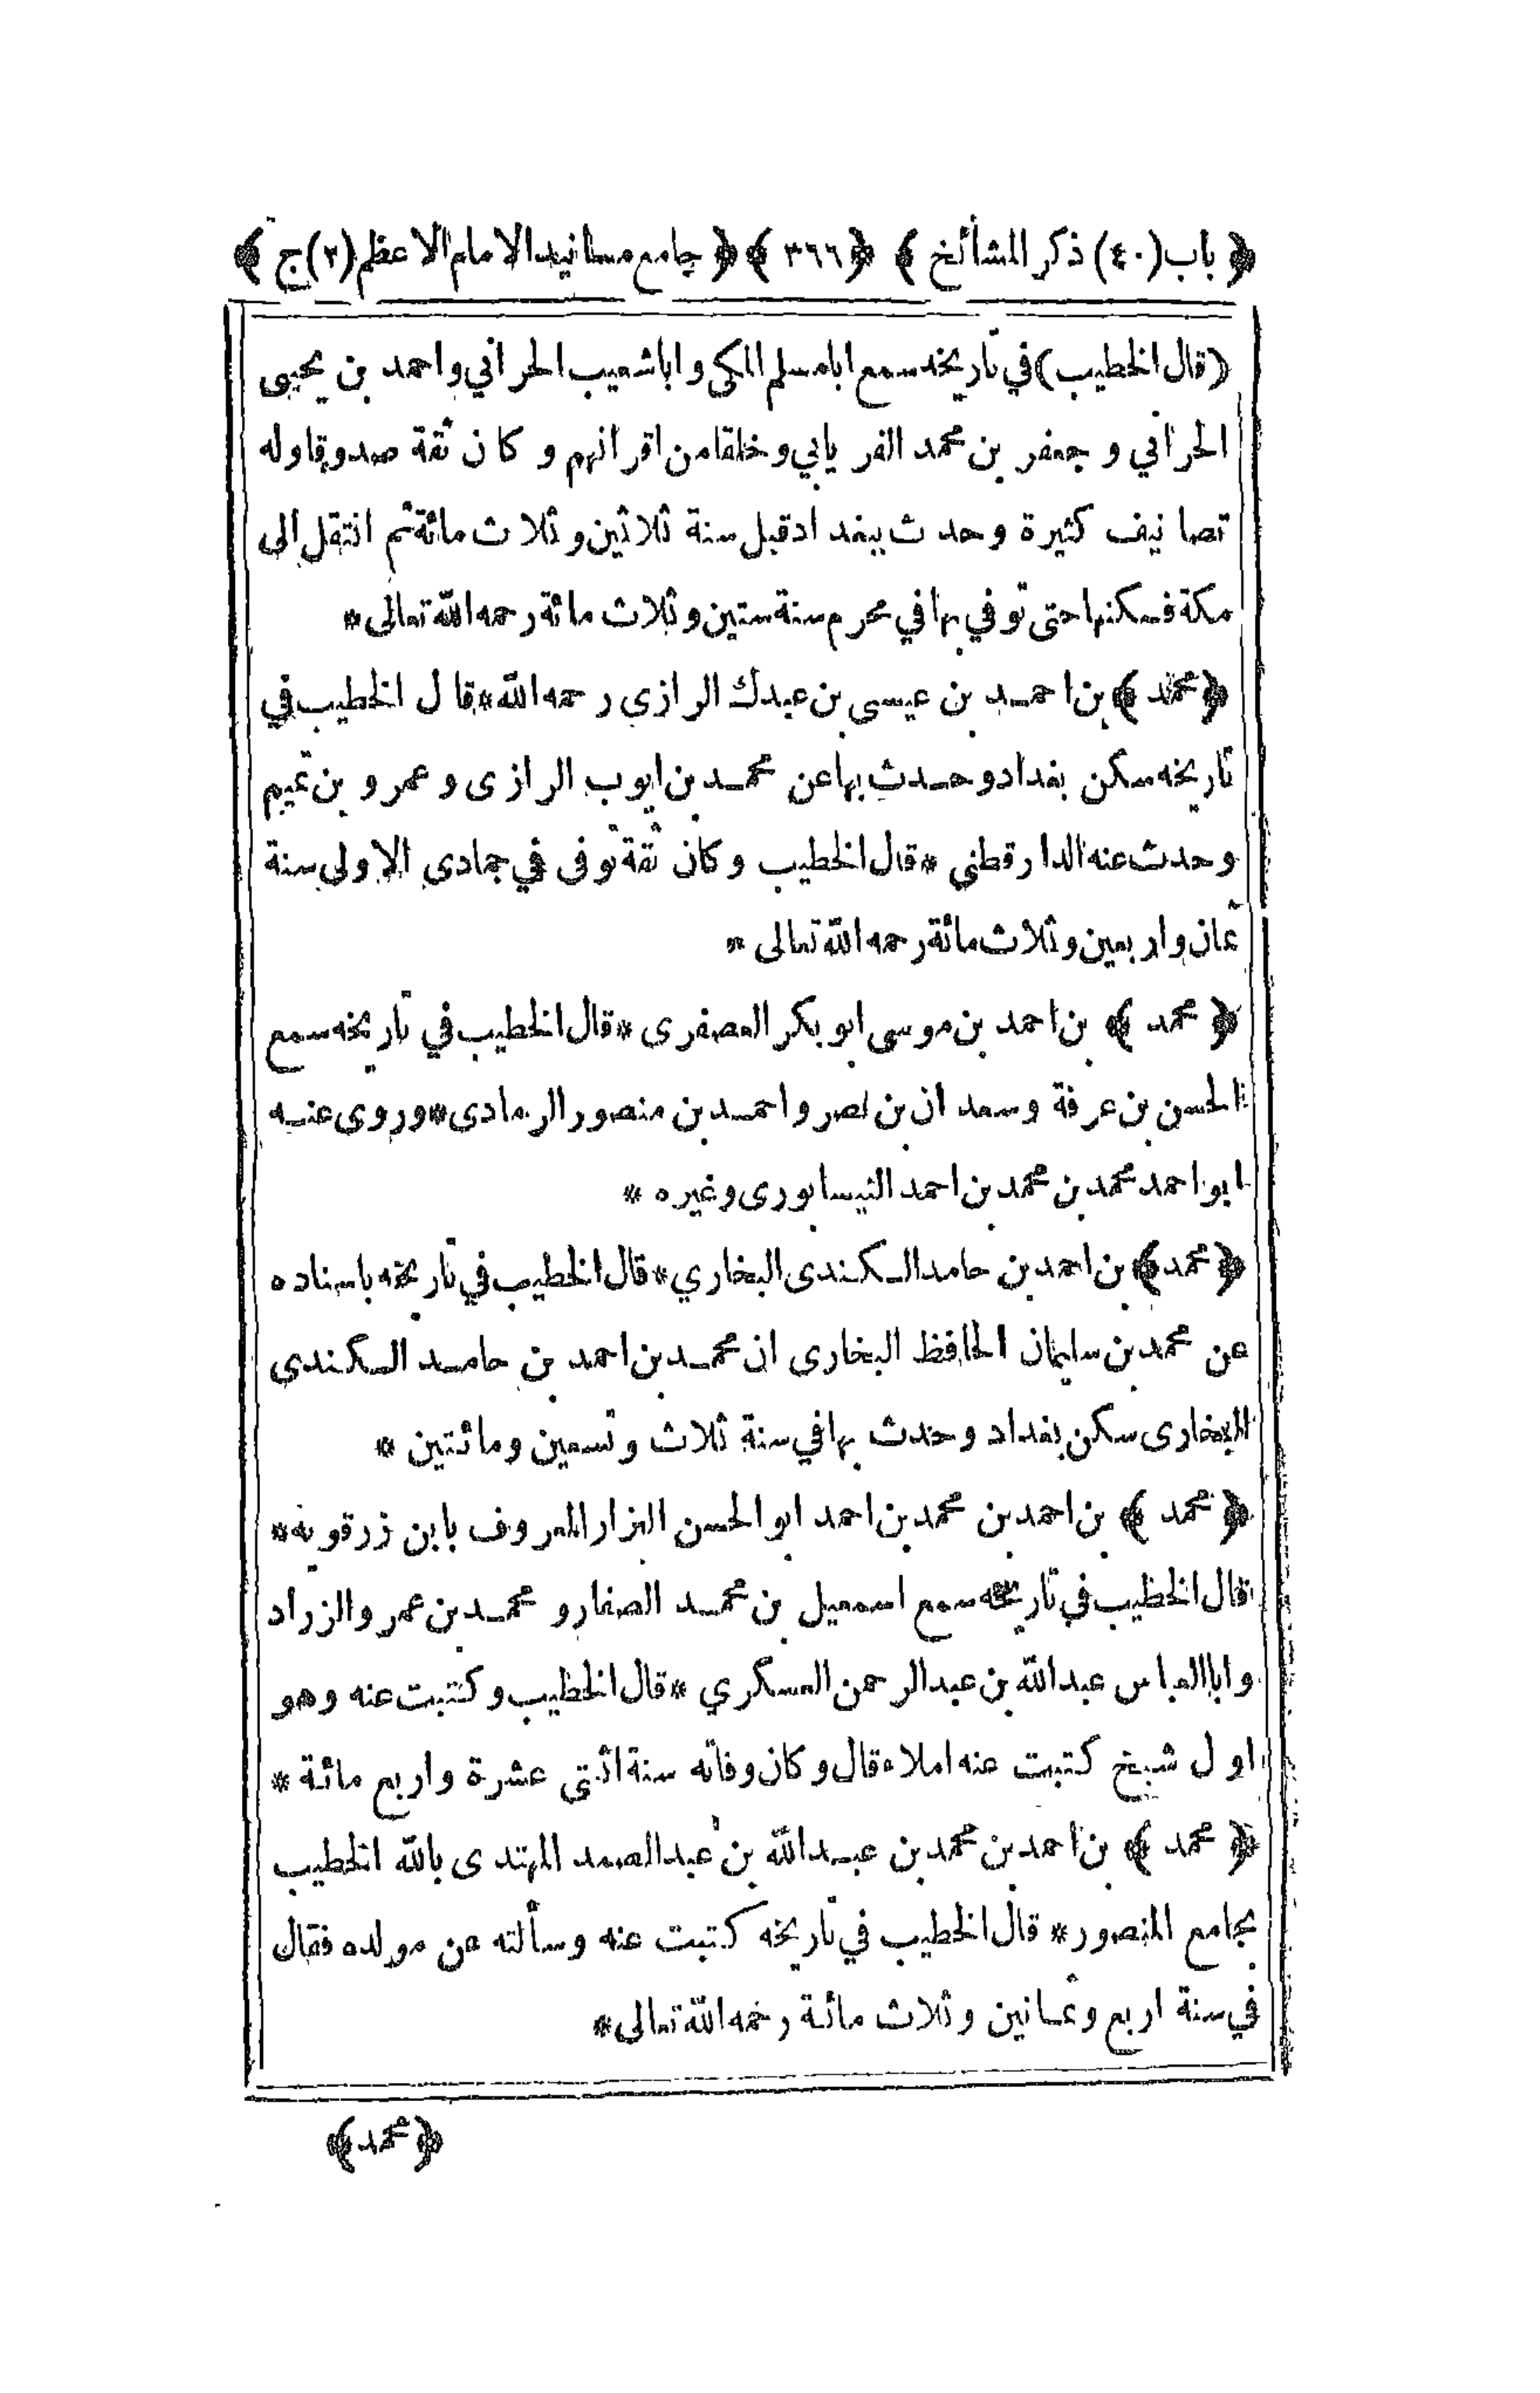 ﴿ باب (٤٠) ذكر المشائخ ﴾ ﴿ ٣٦٦ ﴾ ﴿ جامع مسانيد الامام الاعظم (٢) ج ﴾
(قال الخطيب) في تاريخه سمع ابا مسلم المكى و ابا شعيب الحراني و احمد بن يحيى
الحراني و جعفر بن محمد الفريابي و خلقا من اقرانهم و كان ثقة صدوقا وله
تصانيف كثيرة وحدث ببغداد قبل سنة ثلاثين و ثلاث مائة ثم انتقل الى
مكة فسكنها حتى توفي بها في محرم سنة ستين و ثلاث مائة رحمه الله تعالى *
﴿ محمد ﴾ بن احمد بن عيسى بن عبدك الرازى رحمه الله * قال الخطيب في
تاريخه سكن بغداد و حدث بها عن محمد بن ايوب الرازى و عمرو بن تميم
وحدث عنه الدارقطني * قال الخطيب و كان ثقة توفى في جمادى الاولى سنة
ثمان و اربعين و ثلاث مائة رحمه الله تعالى *
﴿ محمد ﴾ بن احمد بن موسى ابو بكر العصفرى * قال الخطيب في تاريخه سمع
الحسن بن عرفة و سعدان بن نصر و احمد بن منصور الرمادى * وروى عنه
ابو احمد محمد بن محمد بن احمد النيسابورى وغيره *
﴿ محمد ﴾ بن احمد بن حامد الكندى البخاري * قال الخطيب في تاريخه باسناده
عن محمد بن سليمان الحافظ البخارى ان محمد بن احمد بن حامد الكندى
البخارى سكن بغداد وحدث بها في سنة ثلاث و تسعين ومائتين *
﴿ محمد ﴾ بن احمد بن محمد بن احمد ابو الحسن البزار المعروف بابن زرقويه *
قال الخطيب في تاريخه سمع اسمعيل بن محمد الصفار و محمد بن عمر و الزراد
و ابا العباس عبد الله بن عبد الرحمن العسكري * قال الخطيب و كتبت عنه وهو
اول شيخ كتبت عنه املاء قال و كان وفاته سنة اثنتى عشرة و اربع مائة *
﴿ محمد ﴾ بن احمد بن محمد بن عبد الله بن عبد الصمد المهتدى بالله الخطيب
بجامع المنصور * قال الخطيب في تاريخه كتبت عنه وسألته عن مولده فقال
في سنة اربع و ثمانين و ثلاث مائة رحمه الله تعالى *
﴿ محمد ﴾